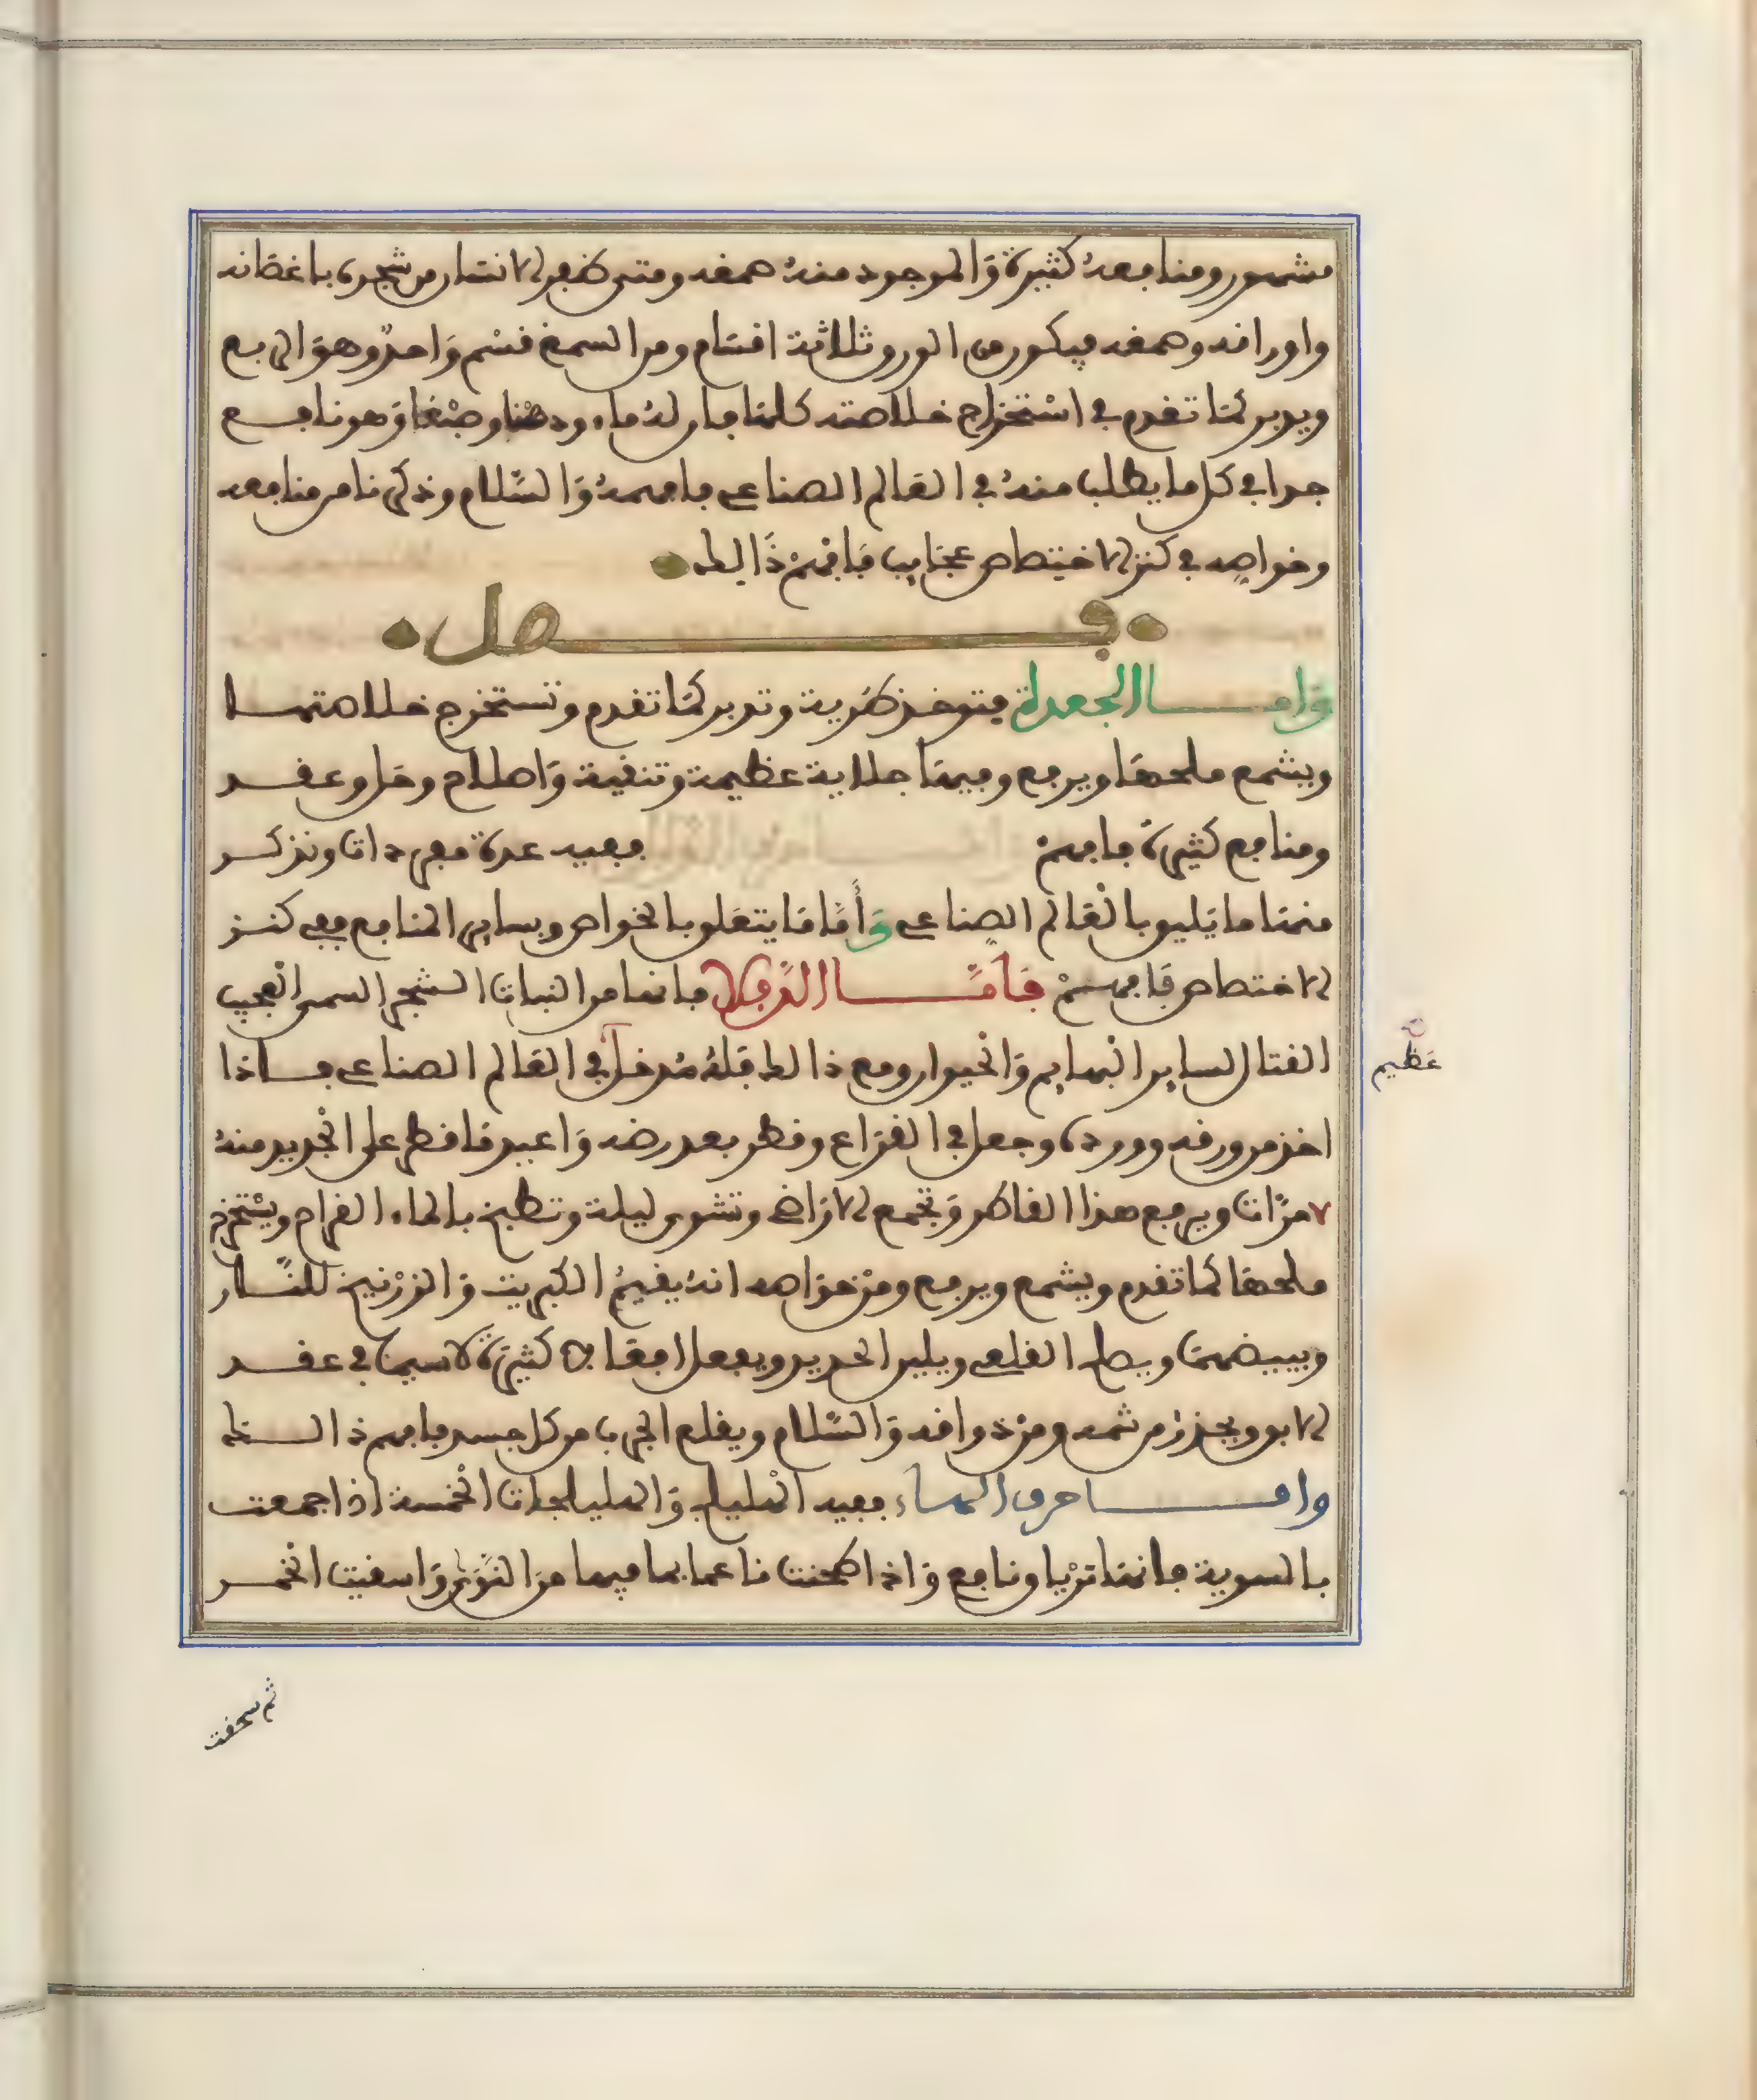 مشهور ومنافعهُ كثيرة وَالموجود منهُ صمغه ومتى ظفر الانسان من شجره باغصانه
واوراقه وصمغه فيكون من الورق ثلاثة اقسَام ومن السمغ قسْم وَاحدٌ وهوَ الربع
ويدبر كمَا تقدم في اسْتخراج خلاصته كلهَا فان لهُ ماء ودهْنا وصبْغا وَهو نافع
جدا في كل ما يطلب منهُ في العَالم الصناعي فافهمهُ وَالسَّلام وذكرنا من منافعه
وخواصه في كنز الاختصاص عجَايب فَافهمْ ذَالك
فصل
وَامـا الجعدة فتوخذ طَرية وتدبر كمَا تقدم وتستخرج خلاصتهـا
ويشمع ملحهَا ويرفع وفيهَا جلاية عظيمة وتنقية وَاصلاح وحَل وعقـد
ومنافع كثيرةٌ فافهمْ ففيه عدة مفردات ونذكـر
منهَا ما يَليق بالْعَالم الصناعي وَأَمَّا مَا يتعَلق بالخواص وبساير المنافع ففي كنـز
الاختصاص فَافهـمْ فَأمَّـــا الدَّفلا فانها من النبات الشجر السمى العجيب
القتال لساير البهايم وَالحيوان ومع ذالك فَلهُ مُدخلٌ في العَالم الصناعي فـاذا
عَظيم
اخذ من ورقه ووردہ وجعل في القرَاع وقطر بعد رضه وَاعيد مَا قطر على الجديد منهُ
٧ مرَّات ويرفع هذا القاطر وَتجمع الارَاضي وتشوى ليلة وتطبخ بالماء القراح ويسْتخرج
ملحهَا كما تقدم ويشمع ويرفع ومنْ خوَاصه انهُ يقيمُ الكبريت وَالزرْنيخ للنَّـار
ويبيضهمَا ويصلب القلعي ويلين الحديد ويفعل افعَالا كثيرَة لاسيمَا في عقـد
الابق ويحذرُ من شمه ومن ذواقه وَالسَّلام ويقلع الجرب من كل جسد فافهم ذالـك
وامـــا حرف الهـاء ففيه الهليلج وَالهليلجات الخمسة اذا جمعت
بالسوية فانهَا ترْياق نافع وَاذا طحنت ناعما بما فيها منَ النوَى وَاسقيت الخمـر
ثم سحقت